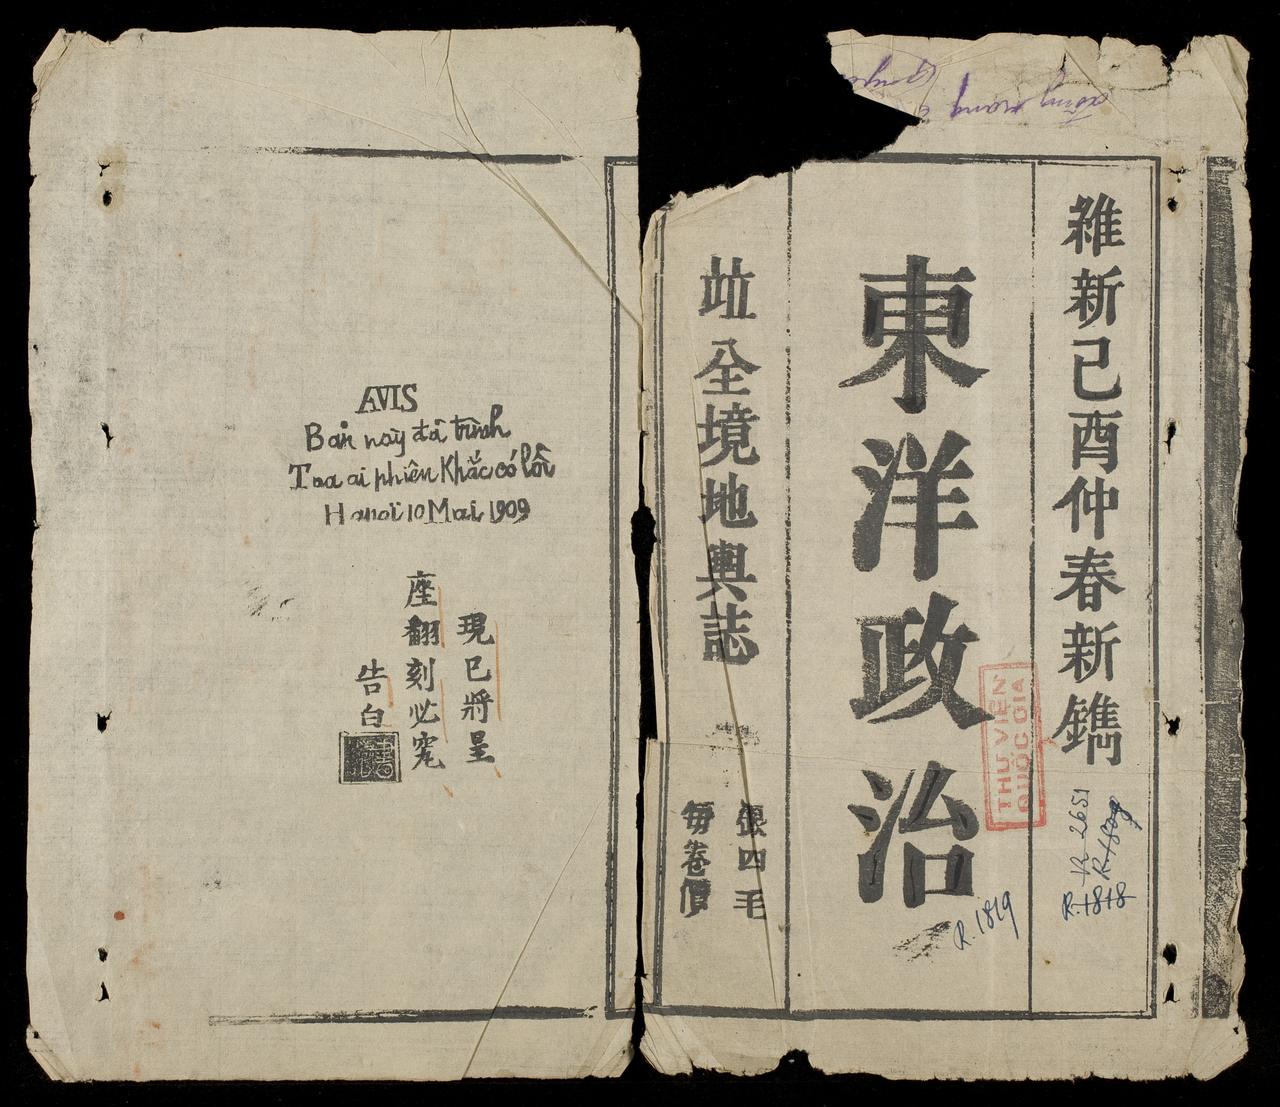 維新己酉仲春新鐫
東洋政治
竝全境地輿誌
每卷價
銀四毛
THƯ VIỆN
QUỐC GIA
R. 2651
R. 1818
R. 1819
AVIS
Bản này đã trình
Tòa ai phiên Khắc có lỗi
Hanoi 10 Mai 1909
現已將呈
座翻刻必究
告白